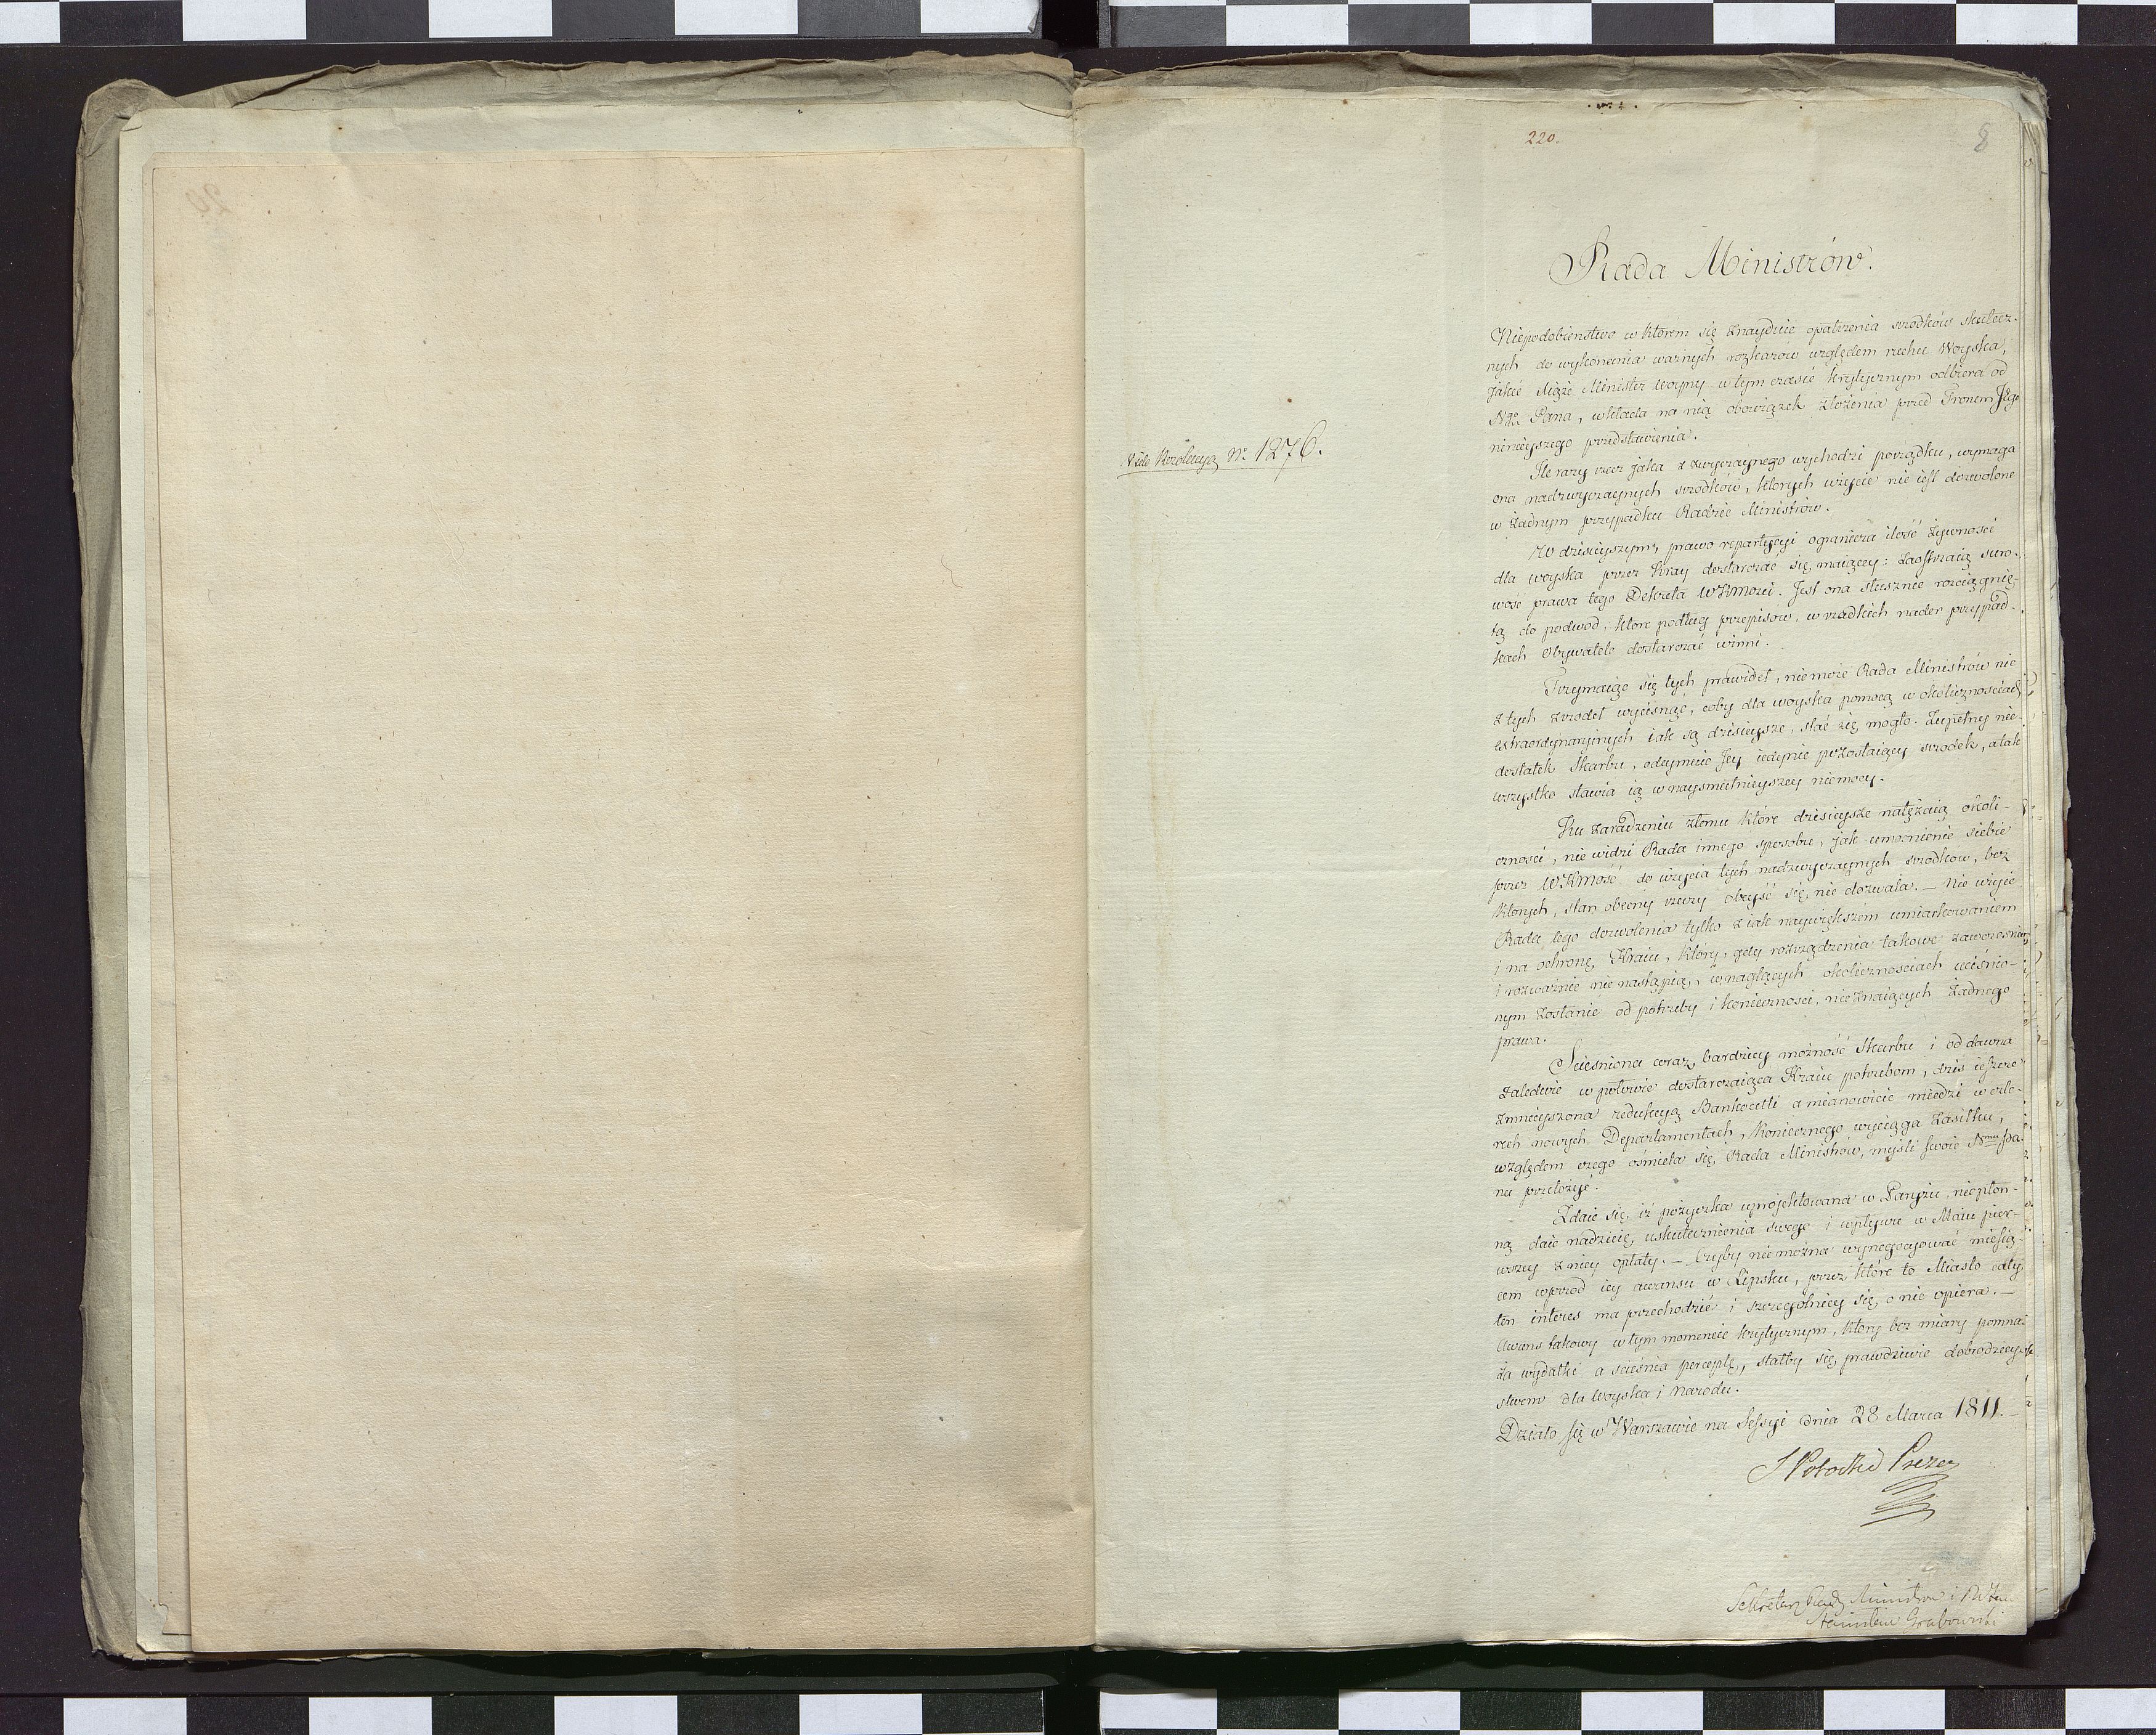 220.
8
Rada Ministrów.
Vide Rezolucyą Nº 1276.
Niepodobienstwo w którem się znayduie opatrzenia srodków skutecz-
nych do wykonania ważnych rozkazów względem ruchu Woyska,
jakie Xiąże Minister Woyny w tym czasie krytycznym odbiera od
Ngo Pana, wkłada na nią obowiązek złożenia przed Tronem Jego
ninieyszego przedstawienia.
Ile razy rzecz jaka z zwyczaynego wychodzi porządku, wymaga
ona nadzwyczaynych srodków, których użycie nie iest dozwolone
w żadnym przypadku Radzie Ministrów.
W dzisieyszym, prawo repartycyi ogranicza ilość żywności
dla woyska przez Kray dostarczać się maiącey: zaostrzaią suro-
wość prawa tego Dekreta WKMości. Jest ona słusznie rozciągnię-
tą do podwod, które podług przepisów, w rzadkich nader przypad-
kach Obywatele dostarczać winni.
Trzymaiąc się tych prawideł, nie może Rada Ministrów nic
z tych zrodeł wycisnąć, coby dla woyska pomocą w okolicznościach
extraordynaryinych iak są dzisieysze, stać się mogło. Zupełny nie-
dostatek Skarbu, odeymuie Jey iedynie pozostaiący srodek, a tak
wszystko stawia ią w naysmutnieyszey niemocy.
Ku zaradzeniu złemu które dzisieysze natężaią okoli-
czności, nie widzi Rada innego sposobu, jak umocnienie siebie
przez WKMość do użycia tych nadzwyczaynych srodków, bez
których, stan obecny rzeczy obeyść się nie dozwala. — Nie użyie
Rada tego dozwolenia tylko z iak naywiększém umiarkowaniem
i na ochronę Kraiu, który, gdy rozrządzenia takowe zawczesnie
i rozważnie nie nastąpią, w naglących okolicznościach uciśnio-
nym zostanie od potrzeby i konieczności, nieznaiących żadnego
prawa.
Scieśniona coraz bardziey możność Skarbu i od dawna
zaledwie w połowie dostarczaiąca Kraiu potrzebom, dziś ieszcze
zmnieyszona redukcyą Bankocetli a mianowicie miedzi w czte-
rech nowych Departamentach, koniecznego wyciąga zasiłku,
względem czego ośmiela się Rada Ministrów, myśli swoie Nmu Pa-
nu przełożyć.
Zdaie się, iż pożyczka uprojektowana w Paryżu, niepłon-
ną daie nadzieię uskutecznienia swego i wpływu w Maiu pier-
wszey z niey opłaty. — Czyby nie można wynegocyować miesią-
cem wprzod iey awansu w Lipsku, przez które to Miasto cały
ten interes ma przechodzić i szczególniey się o nie opiera. —
Awans takowy w tym momencie krytycznym, który bez miary pomna-
ża wydatki a scieśnia perceptę, stałby się prawdziwie dobrodziey-
stwem dla Woyska i Narodu.
Działo się w Warszawie na Sessyi dnia 28 Marca 1811. —
S Potocki Prezes
Sekretarz Rady Ministrów i
Stanisław Grabowski